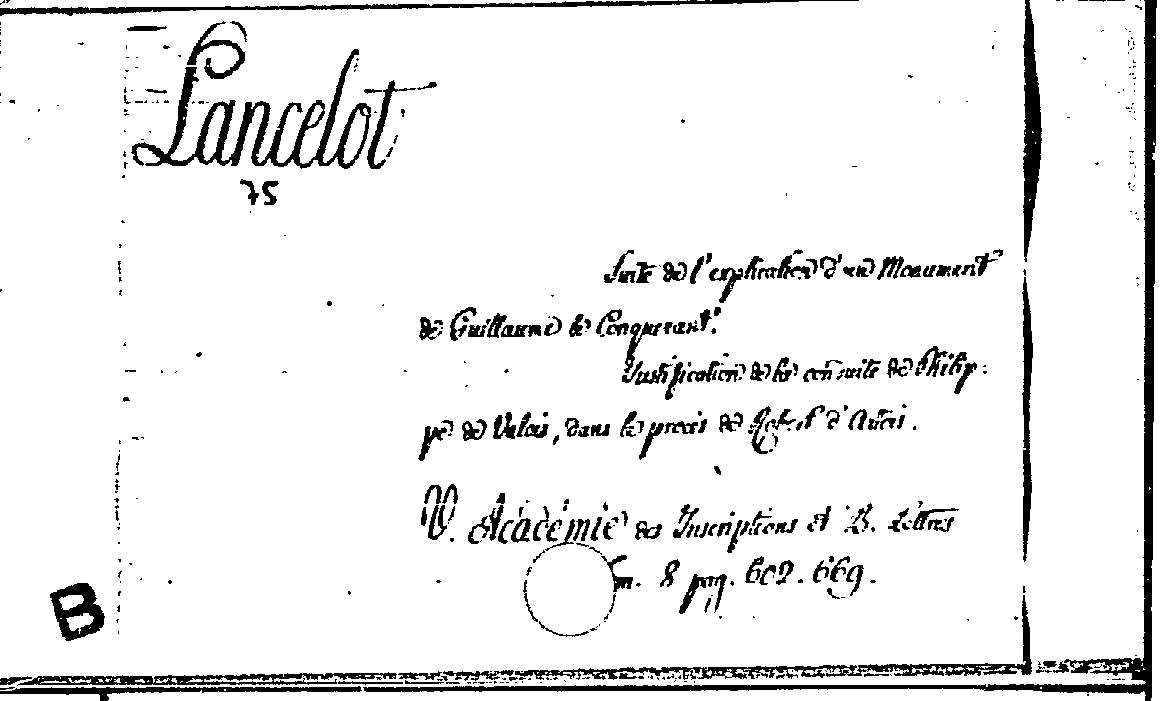 Lancelot
75
Suite de l'explication d'un Monument
de Guillaume le Conquerant.
Justification de la conduite de Philip-
pe de Valois, dans le procès de Robert d'Artois.
V. Académie des Inscriptions et B. Lettres
Tom. 8 pag. 602. 669.
B